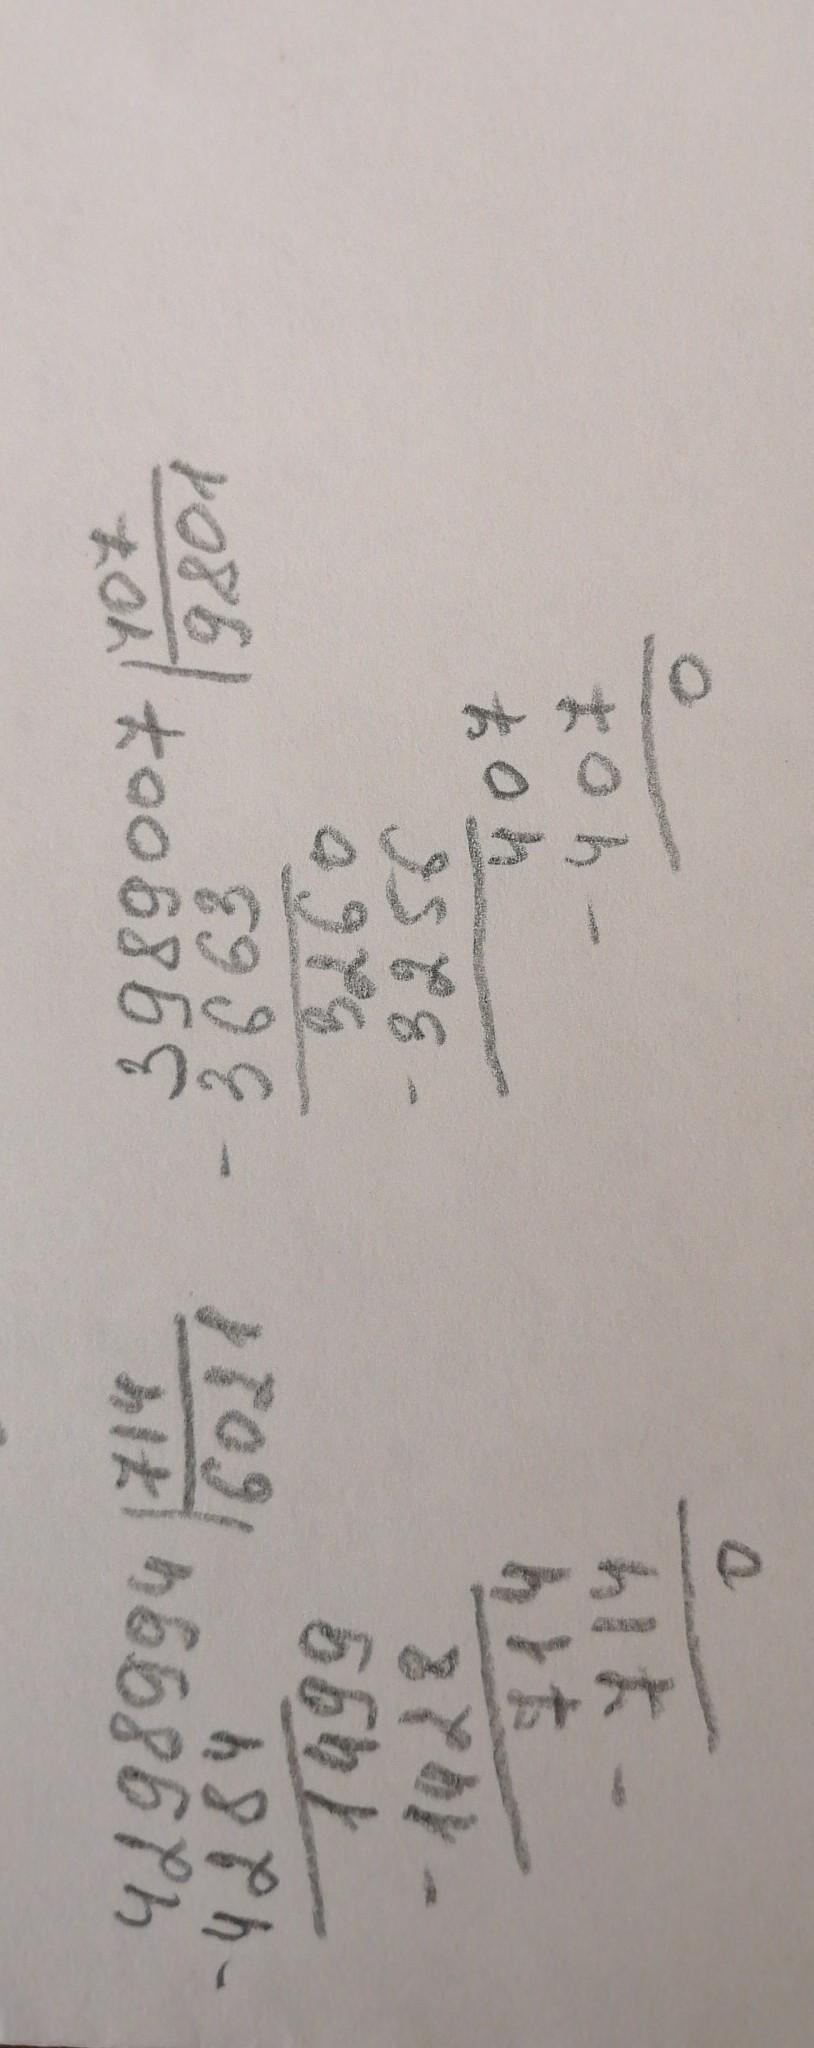 4298994 | 714
- 4284 | 6021
1499
- 1428
714
- 714
0
3989007 | 407
- 3663 | 9801
3260
- 3256
407
- 407
0